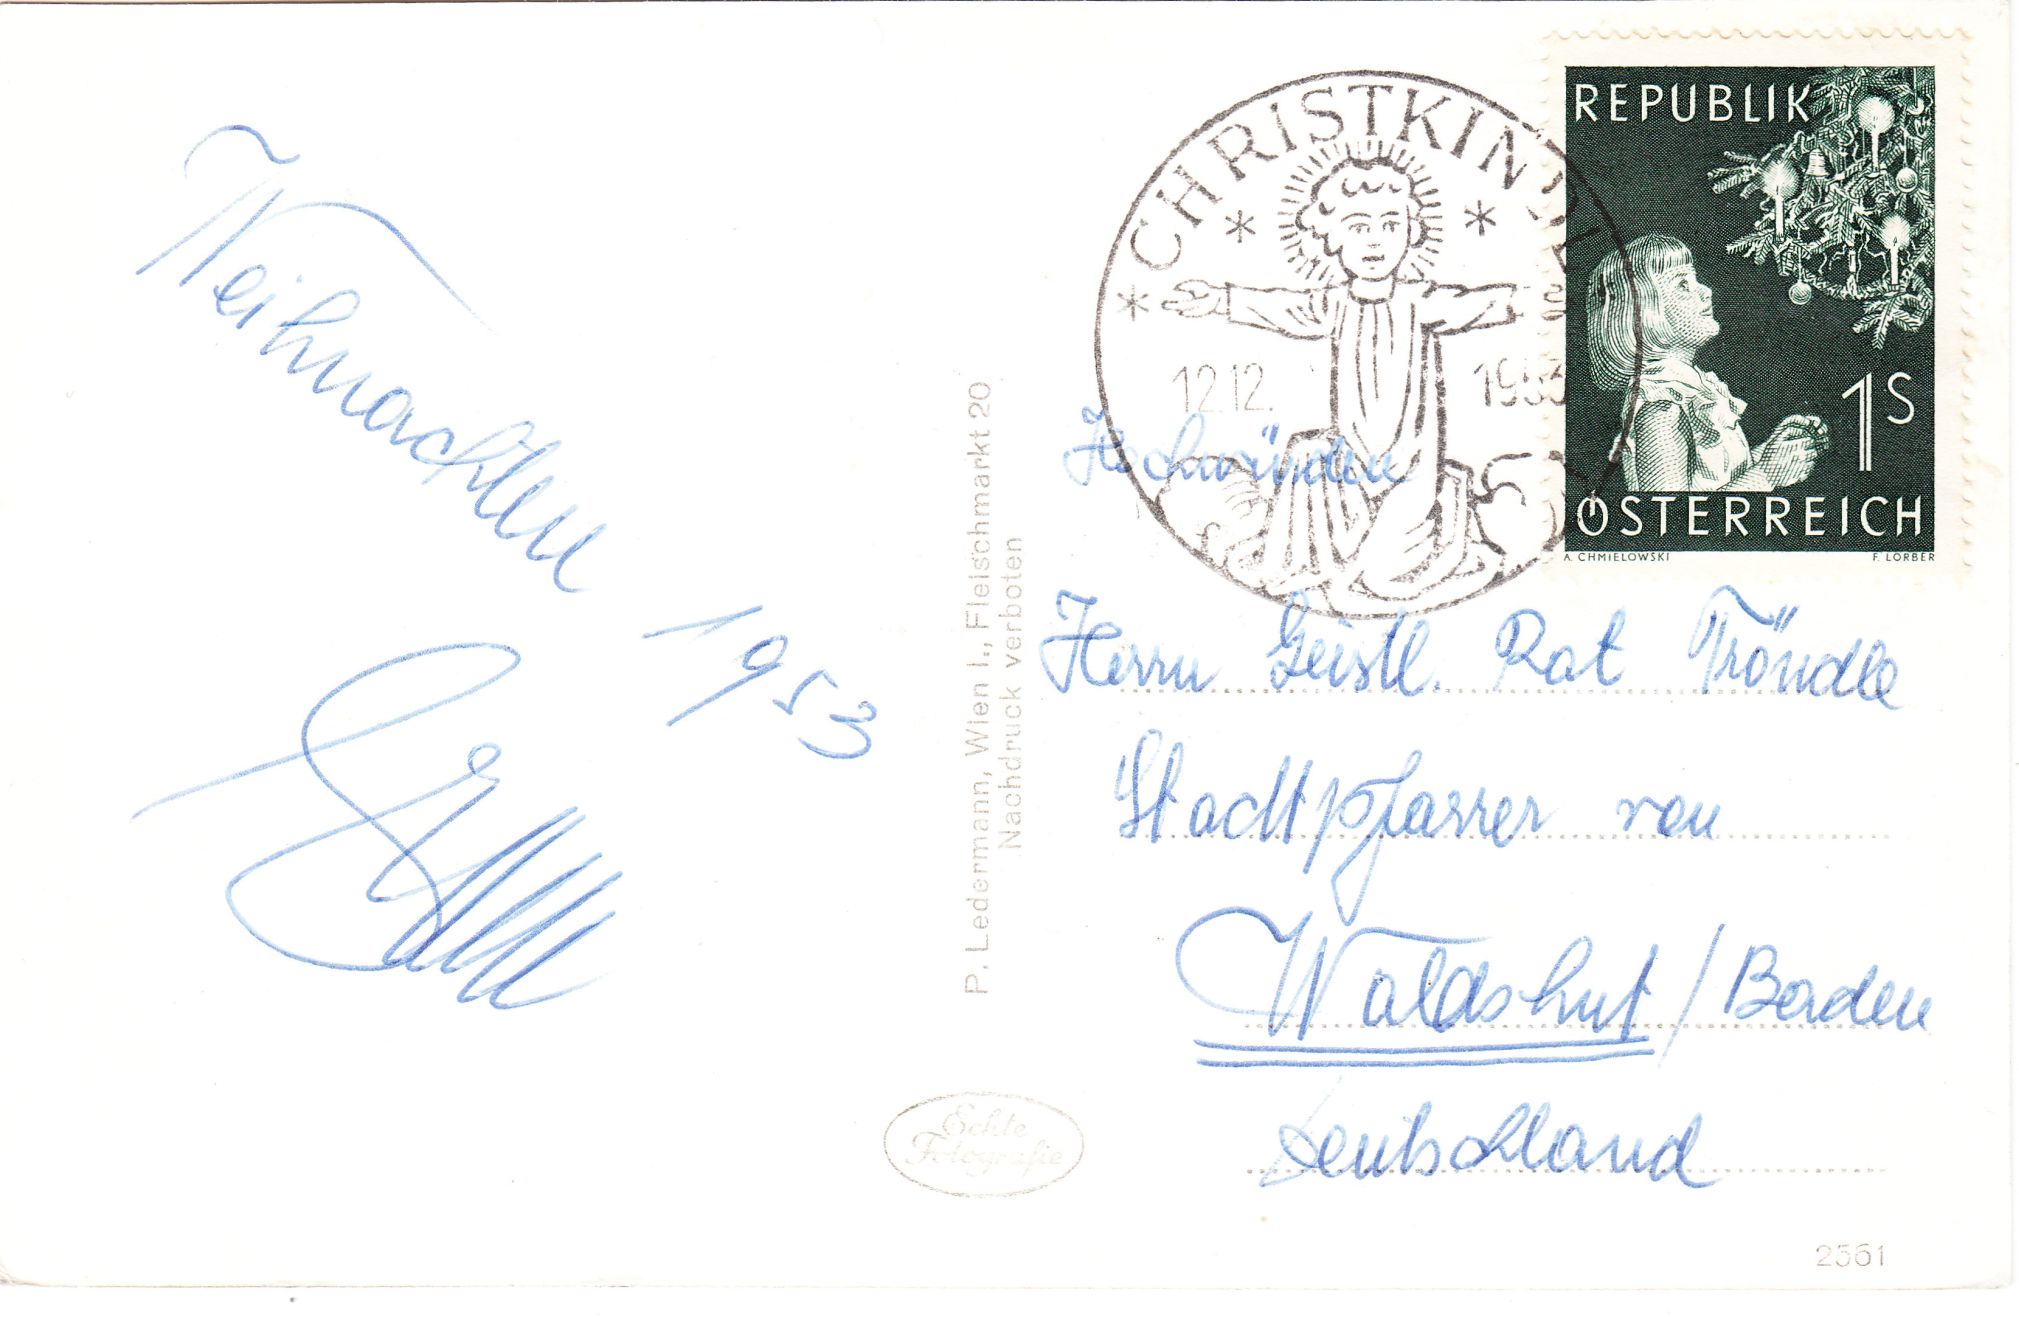 Weihnachten 1953
P. Ledermann, Wien I., Fleischmarkt 20
Nachdruck verboten
Echte
Fotografie
CHRISTKINDL
12.12. 1953
REPUBLIK
1S
ÖSTERREICH
A. CHMIELOWSKI F. LORBER
Hochwürden
Herrn Geistl. Rat Tröndle
Stadtpfarrer von
Waldshut / Baden
Deutschland
2561